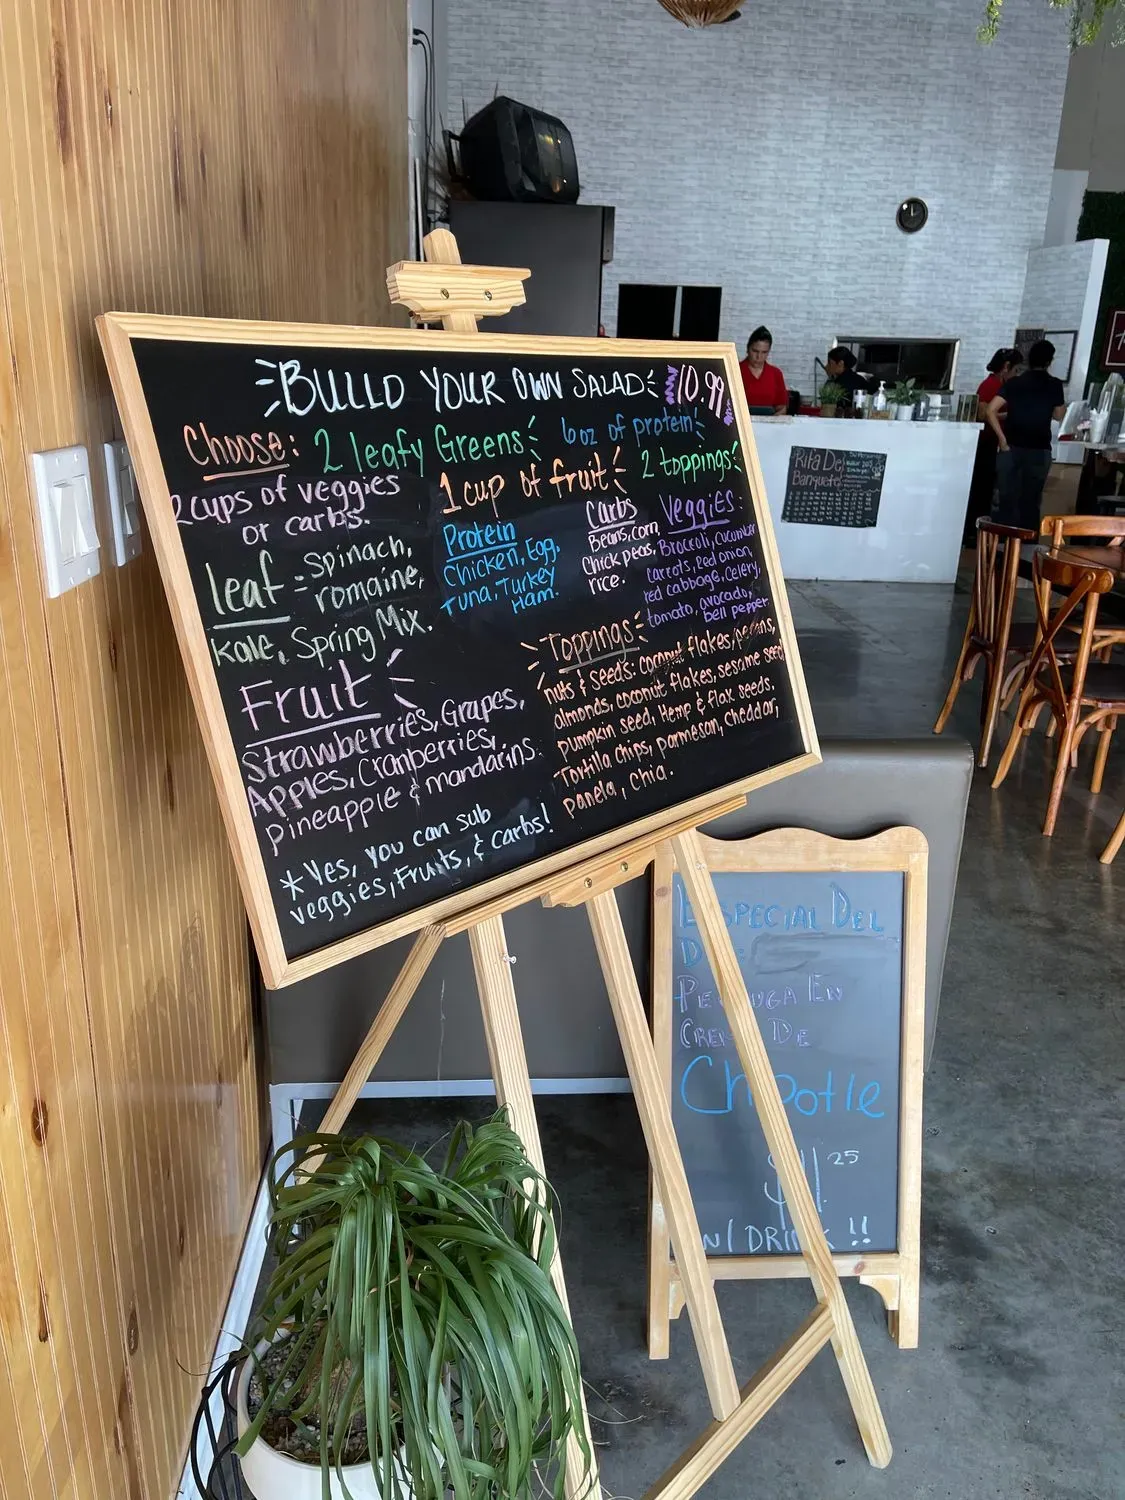 BUILD YOUR OWN SALAD 10.99
Choose: 2 leafy Greens 6oz of protein
2 cups of veggies 1 cup of fruit 2 toppings
or carbs.
leaf = spinach,
romaine,
kale, Spring Mix.
Protein
Chicken, Egg,
Tuna, Turkey
Ham.
Carbs
Beans, corn,
Chickpeas,
rice.
Veggies:
Broccoli, cucumber
carrots, Red onion,
red cabbage, celery,
tomato, avocado,
bell pepper
Fruit
Strawberries, Grapes,
Apples, Cranberries,
pineapple & mandarins.
Toppings
nuts & seeds: coconut flakes, pecans,
almonds, coconut flakes, sesame seed
pumpkin seed, Hemp & flax seeds.
Tortilla chips, parmesan, cheddar,
panela, chia.
*Yes, you can sub
veggies, Fruits, & carbs!
Rifa De
Banquete
ESPECIAL DEL
EN
DE
Chipotle
25
W/ DRINK !!